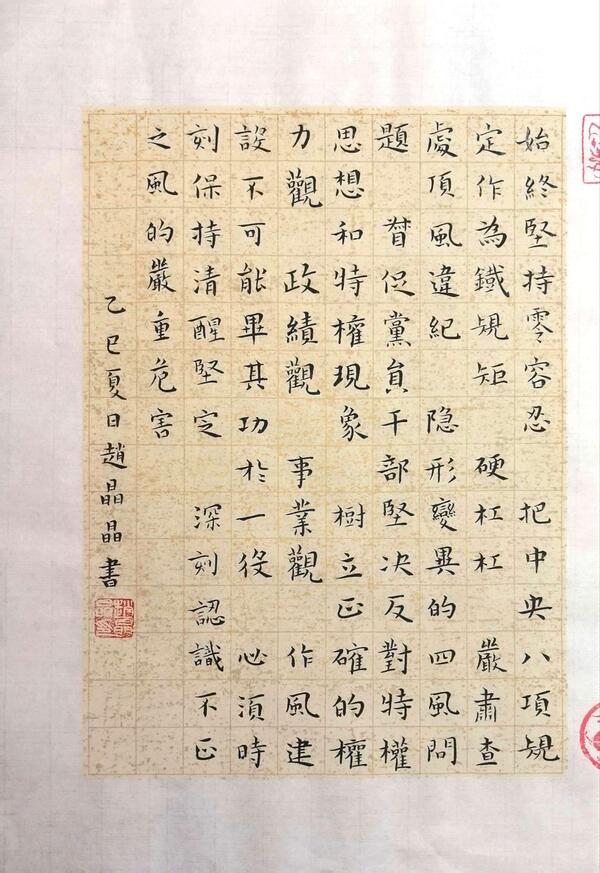 始終堅持零容忍 把中央八項規
定作為鐵規矩 硬杠杠 嚴肅查
處頂風違紀 隐形變異的四風問
題 督促黨員干部堅决反對特權
思想和特權現象 樹立正確的權
力觀 政績觀 事業觀 作風建
設不可能畢其功於一役 必須時
刻保持清醒堅定 深刻認識不正
之風的嚴重危害
乙巳夏日趙晶晶書